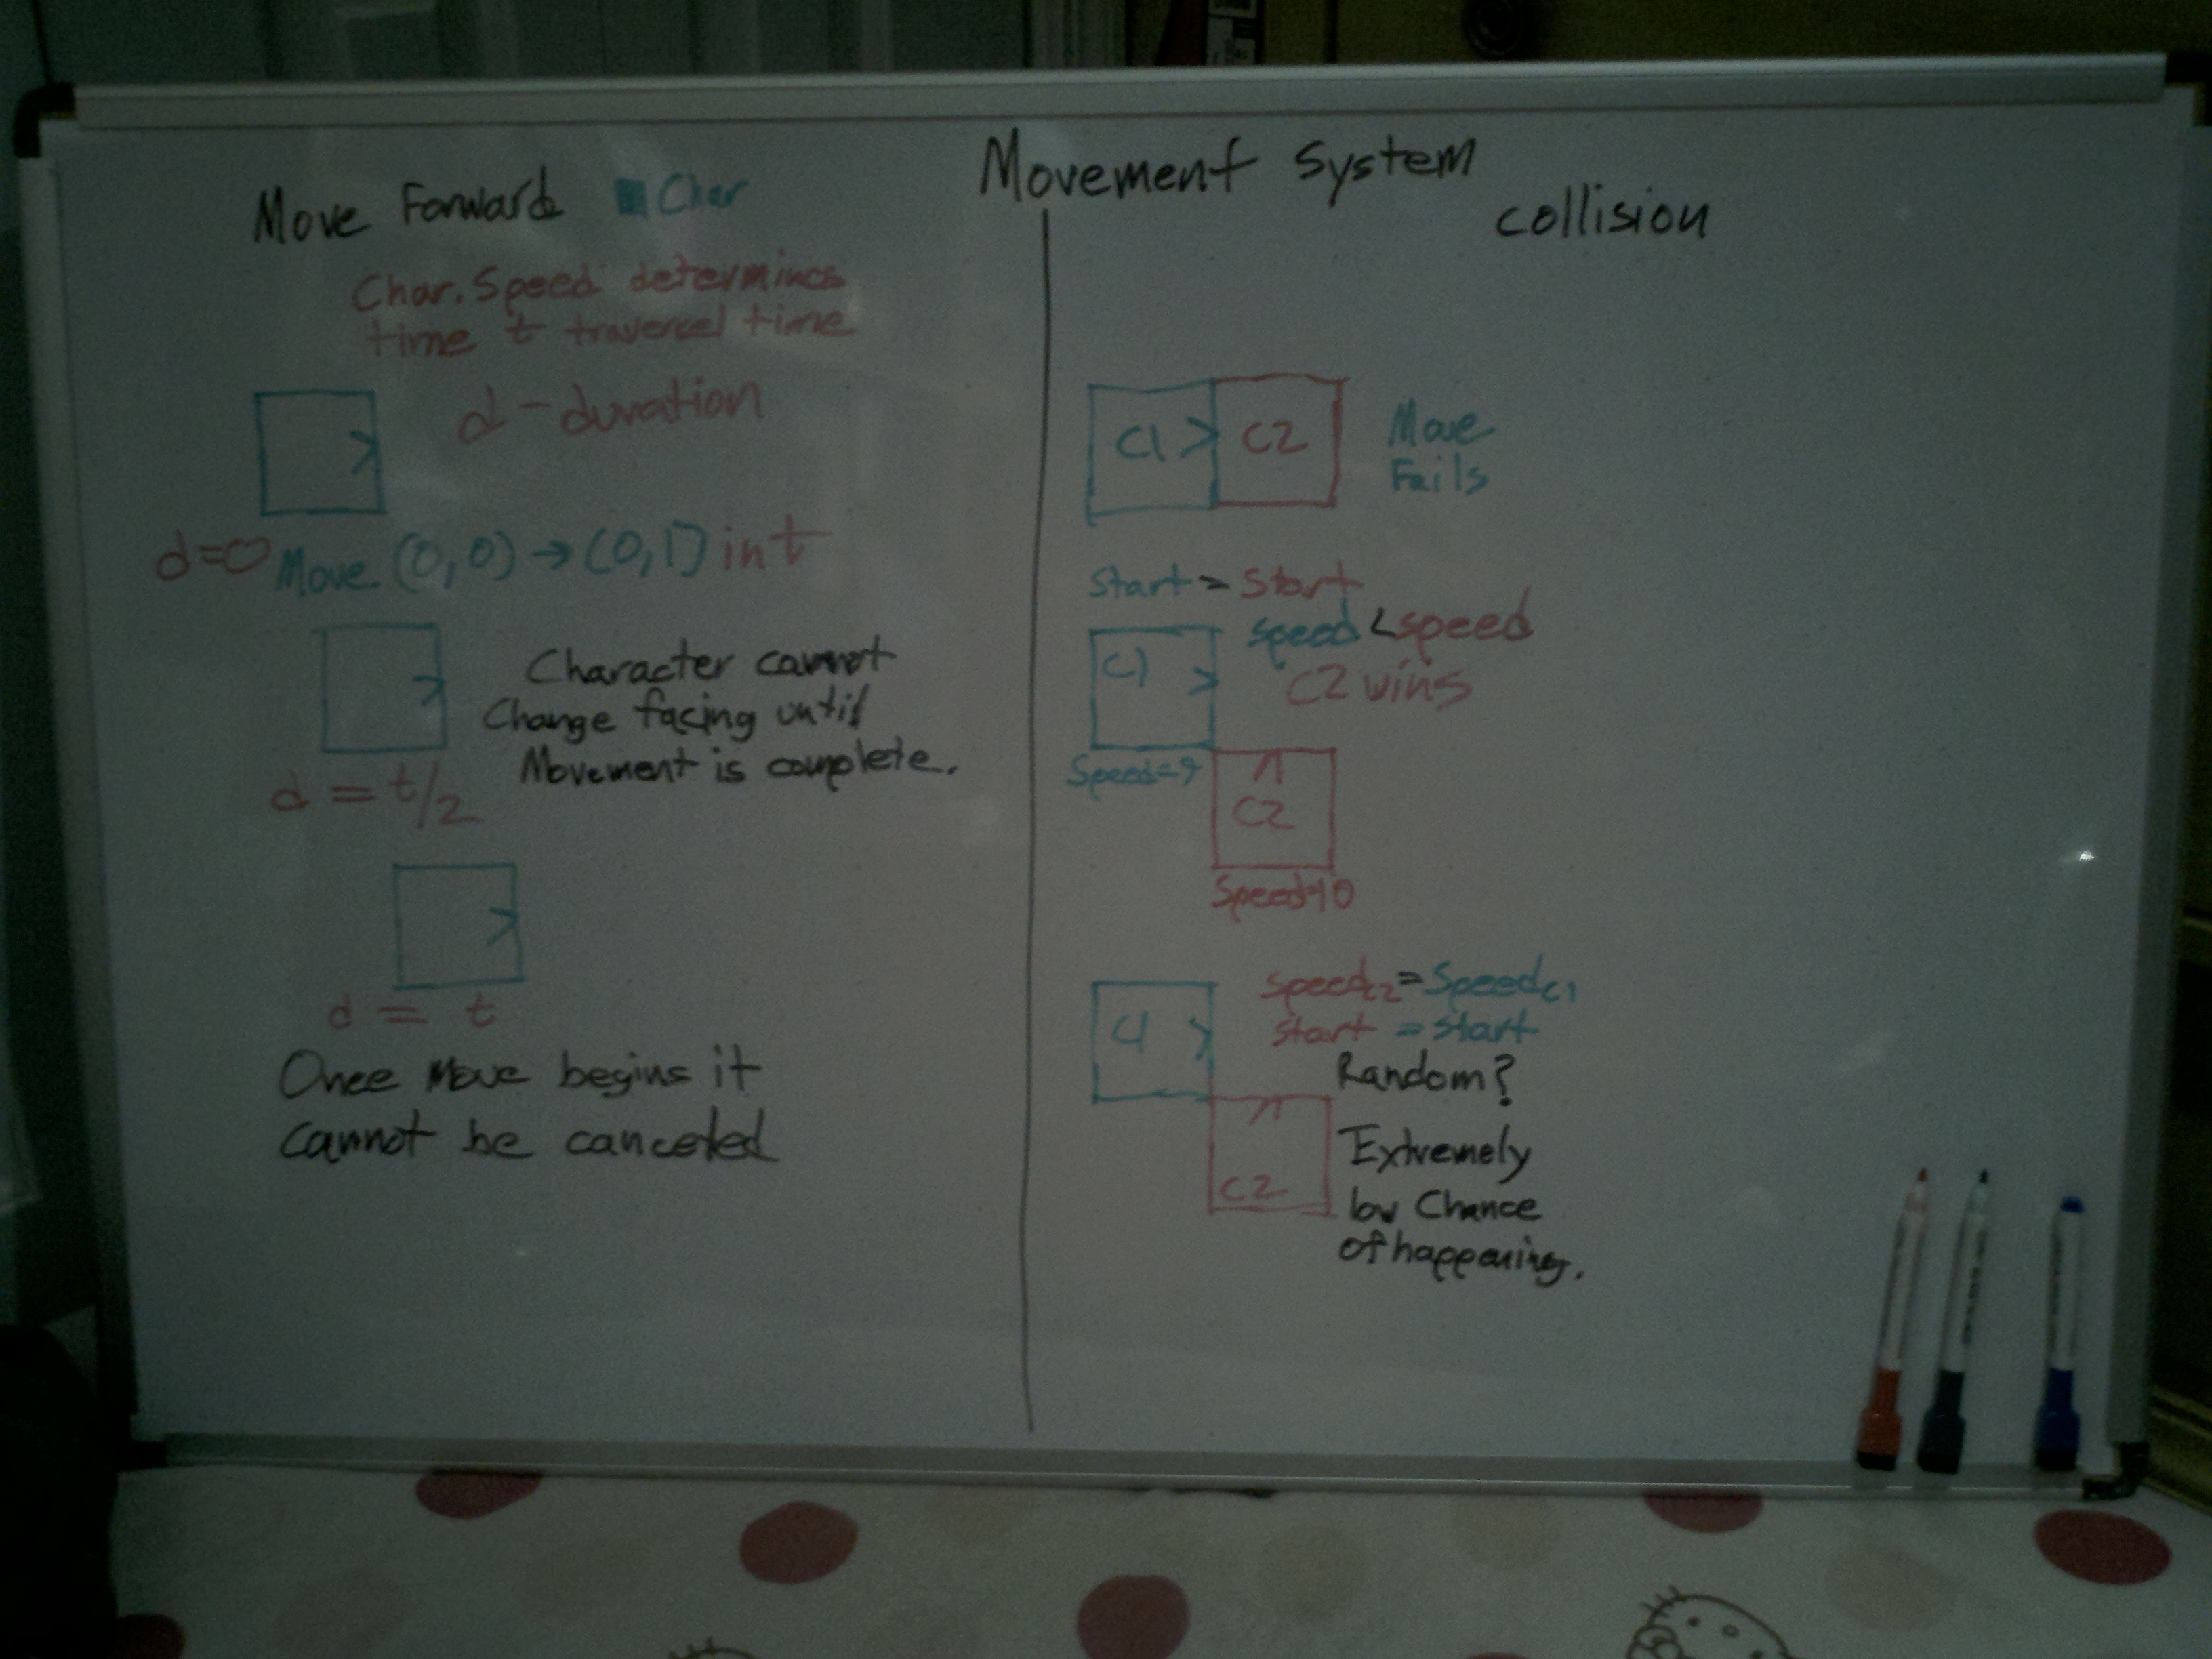 Movement System
Move Forward Char
Char. Speed determines
time t traversal time
d - duration
d=0 Move (0,0) → (0,1) in t
Character cannot
Change facing until
Movement is complete.
d = t/2
d = t
Once Move begins it
cannot be canceled
collision
C1 > C2
Move
Fails
Start = Start
speed < speed
C1 >
C2 wins
Speed=9
C2
Speed=10
SpeedC2 = SpeedC1
C1 >
start = start
Random?
Extremely
low Chance
of happening.
C2